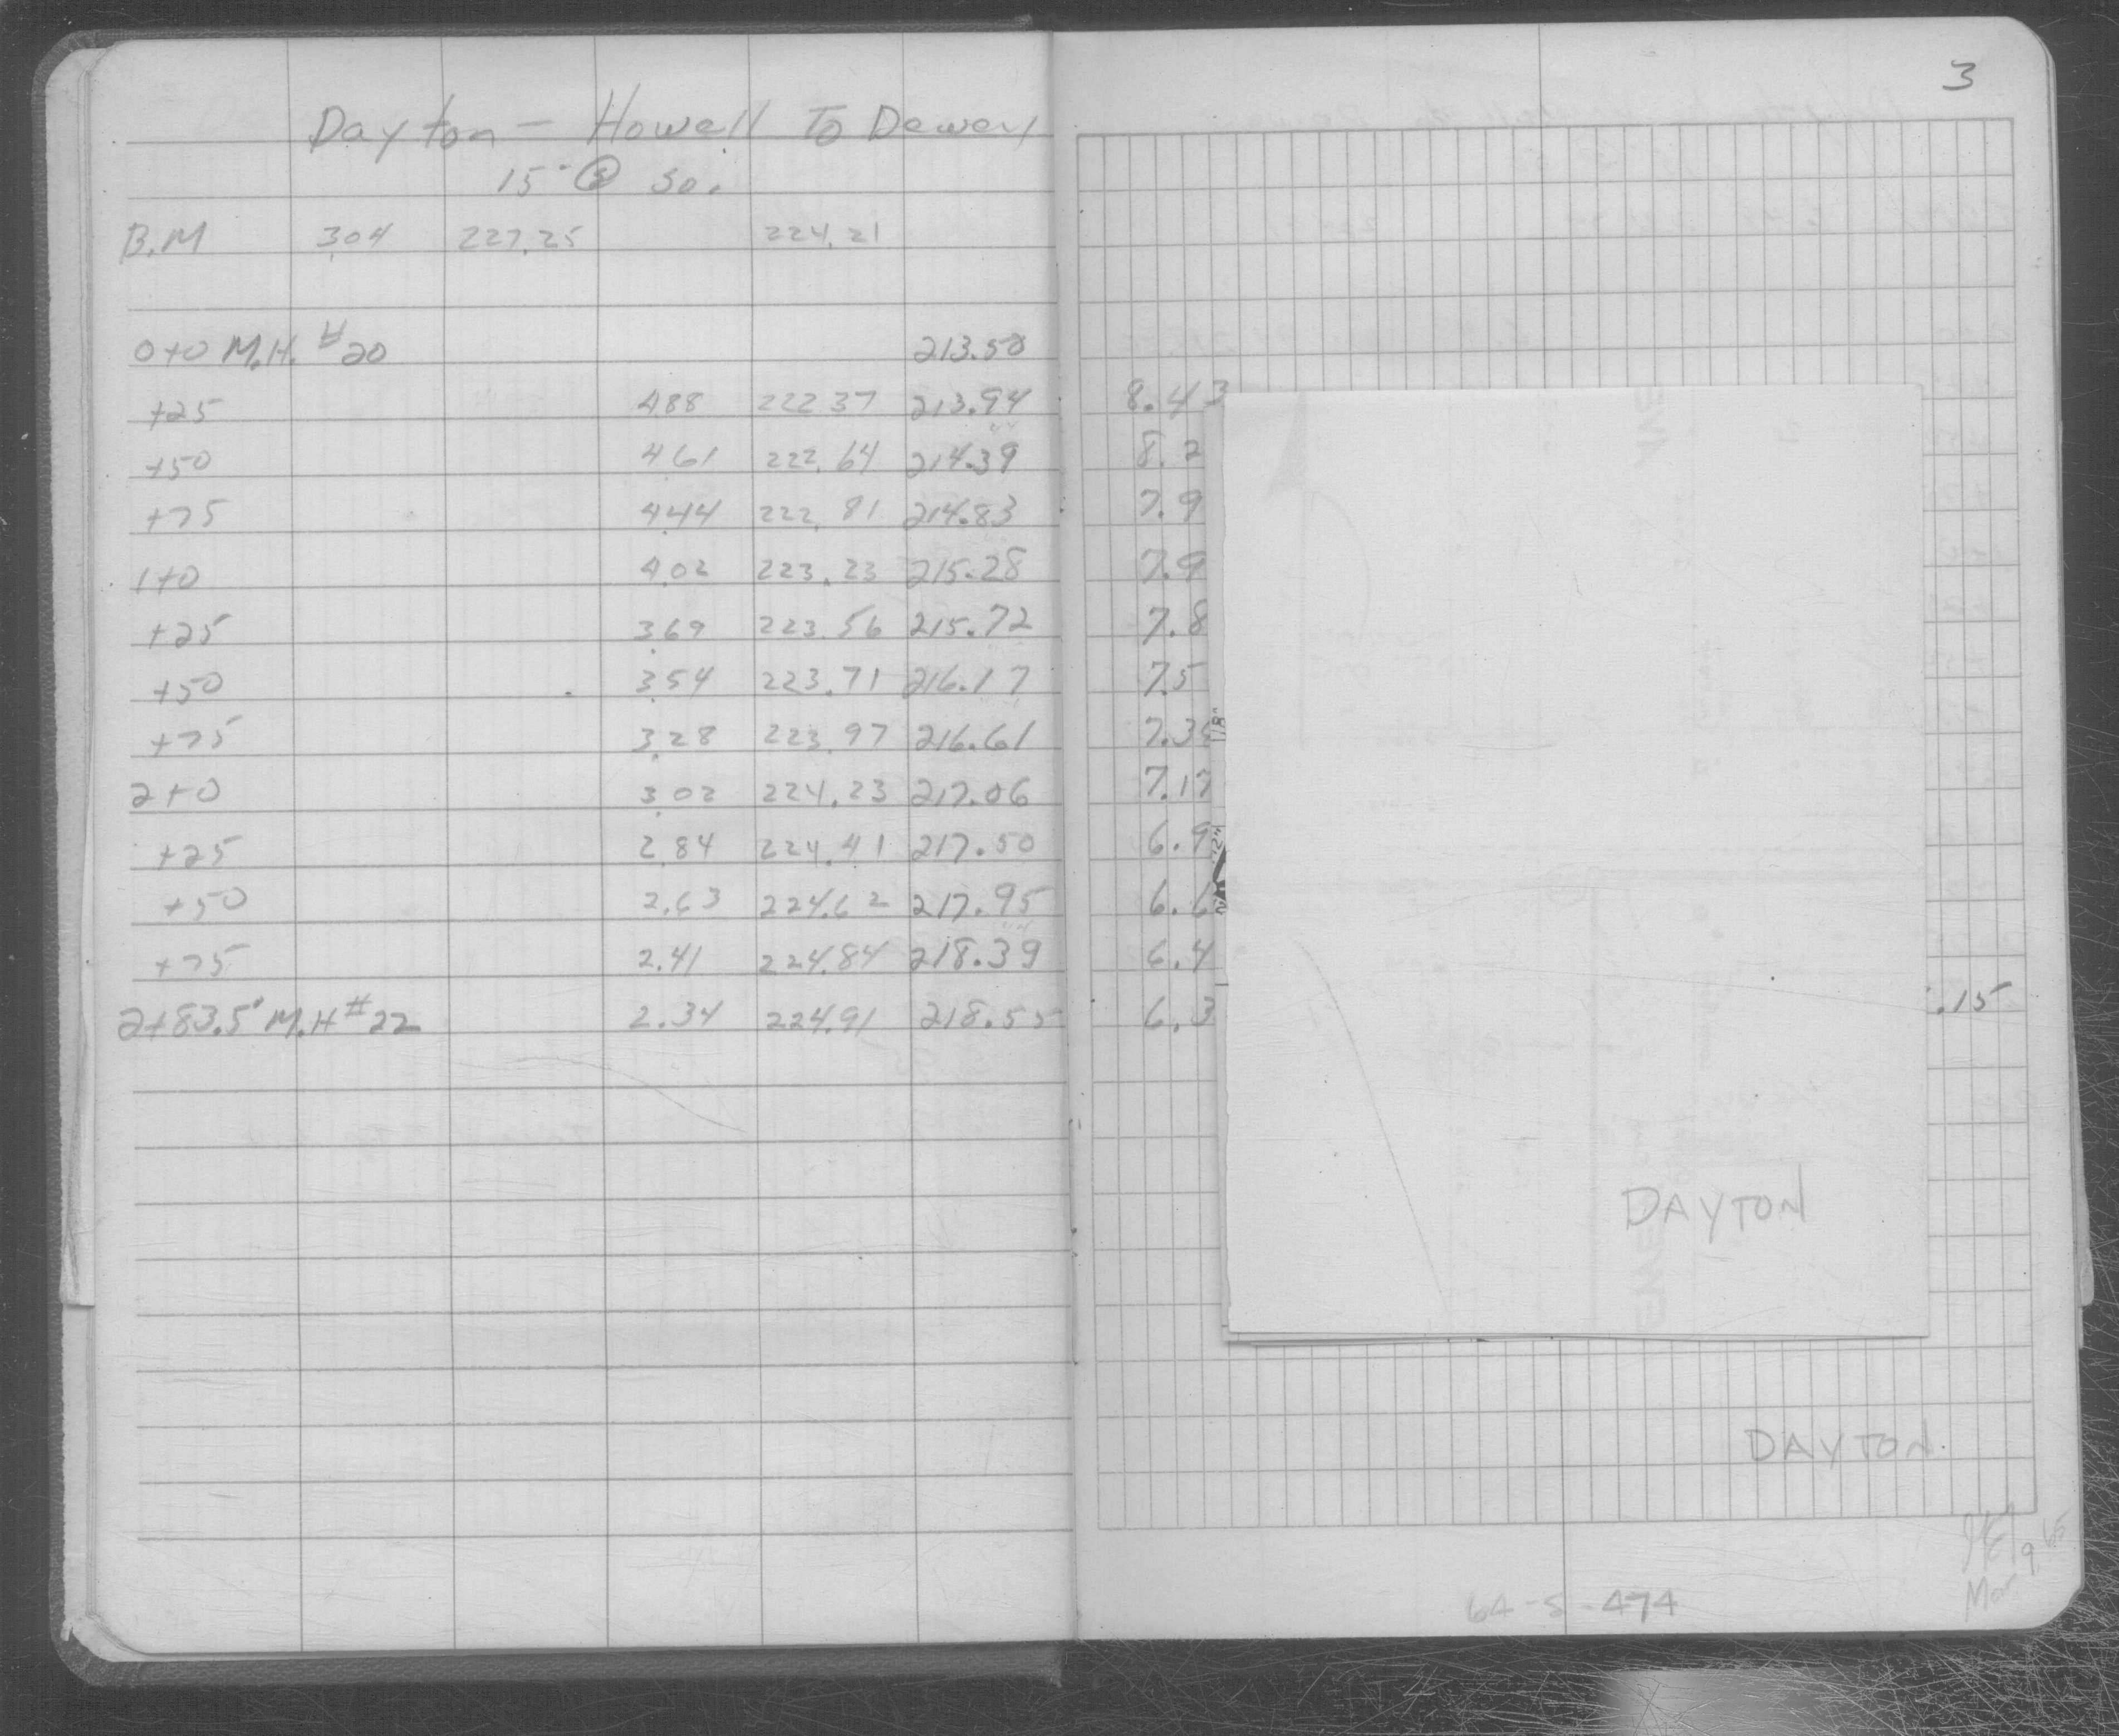 3
Dayton - Howell To Dewey
15" @ 30.
B.M 3.04 227.25 224.21
0+0 M.H. #20 213.50
+25 4.88 222.37 213.94 8.43
+50 4.61 222.64 214.39 8.2
+75 4.44 222.81 214.83 7.9
1+0 4.02 223.23 215.28 7.9
+25 3.69 223.56 215.72 7.8
+50 3.54 223.71 216.17 7.5
+75 3.28 223.97 216.61 7.3
2+0 3.02 224.23 217.06 7.17
+25 2.84 224.41 217.50 6.9
+50 2.63 224.62 217.95 6.6
+75 2.41 224.84 218.39 6.4
2+83.5' M.H #22 2.34 224.91 218.55 6.3 .15
DAYTON
DAYTON
64-S-474
Mar 9